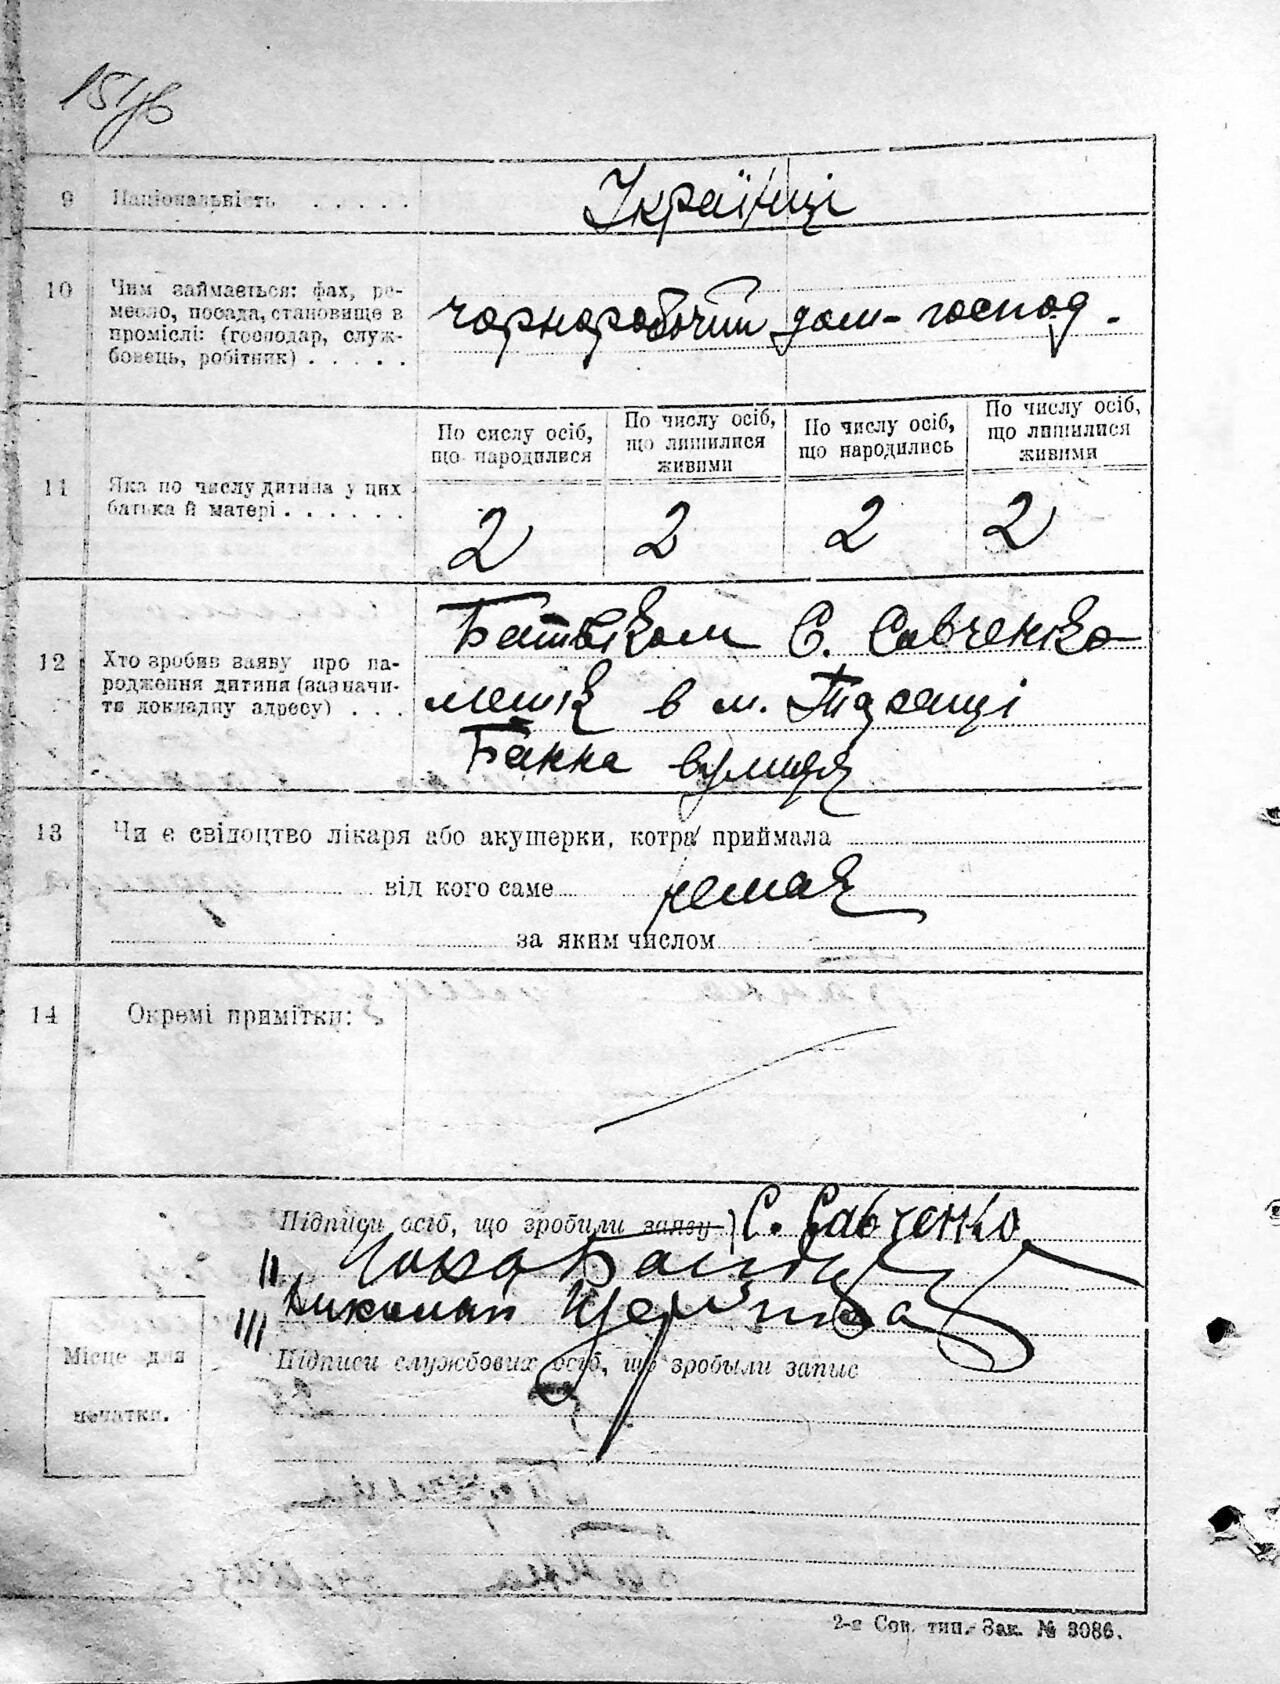 9 Національність . . . . .
Українці
10 Чим займається: фах, ре-
месло, посада, становище в
проміслі: (господар, служ-
бовець, робітник) . . . . .
чорноробочий дом-господ.
11 Яка по числу дитина у цих
батька й матері . . . . . .
По сислу осіб,
що народилися
По числу осіб,
що лишилися
живими
По числу осіб,
що народились
По числу осіб,
що лишилися
живими
2 2 2 2
12 Хто зробив заяву про на-
родження дитини (зазначи-
ти докладну адресу) . . .
Батьком С. Савченко
мешк в м.
Банна вулиця
13 Чи є свідоцтво лікаря або акушерки, котра приймала
від кого саме немає
за яким числом
14 Окремі примітки:
Підписи осіб, що зробили заяву) С. Савченко
II
III Николай
Місце для
печатки.
Підписи службових осіб, що зробыли запыс
2-а Сов. тип. Зак. № 3086.